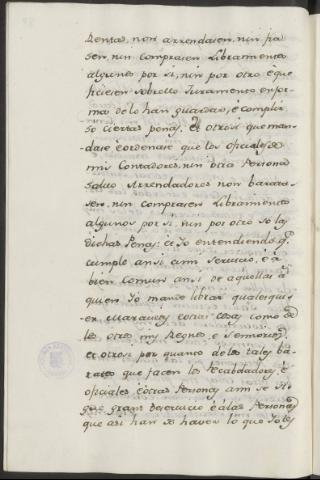 Rentas, non arrendasen, nin fia
sen, nin comprasen Libramientos
algunos por si, nin por otro è que
ficiesen sobrello Juramento en for-
ma de lo han guardar, è complir
so ciertas penas, et otrosi que man-
-dase è ordenase que los oficiales de
mis Contadores, nin otra Persona
salvo Arrendadores non baratas-
sen, nin comprasen Libramientos
algunos por si, nin por otro so las
dichas Penas: è Yo entendiendo q.
cumple ansi à mi servicio, è à
bien Comun ansi de aquellos à
quien Yo mando librar qualesqui-
er Maravedis, è otras cosas como de
los otros mis Regnos, è Señorios,
et otrosi por quanto de los tales ba-
ratos que facen los Recabdadores, è
oficiales è otras Personas à mi se si-
gue gran deservicio è à las Personas
que asi han de haver lo que so les